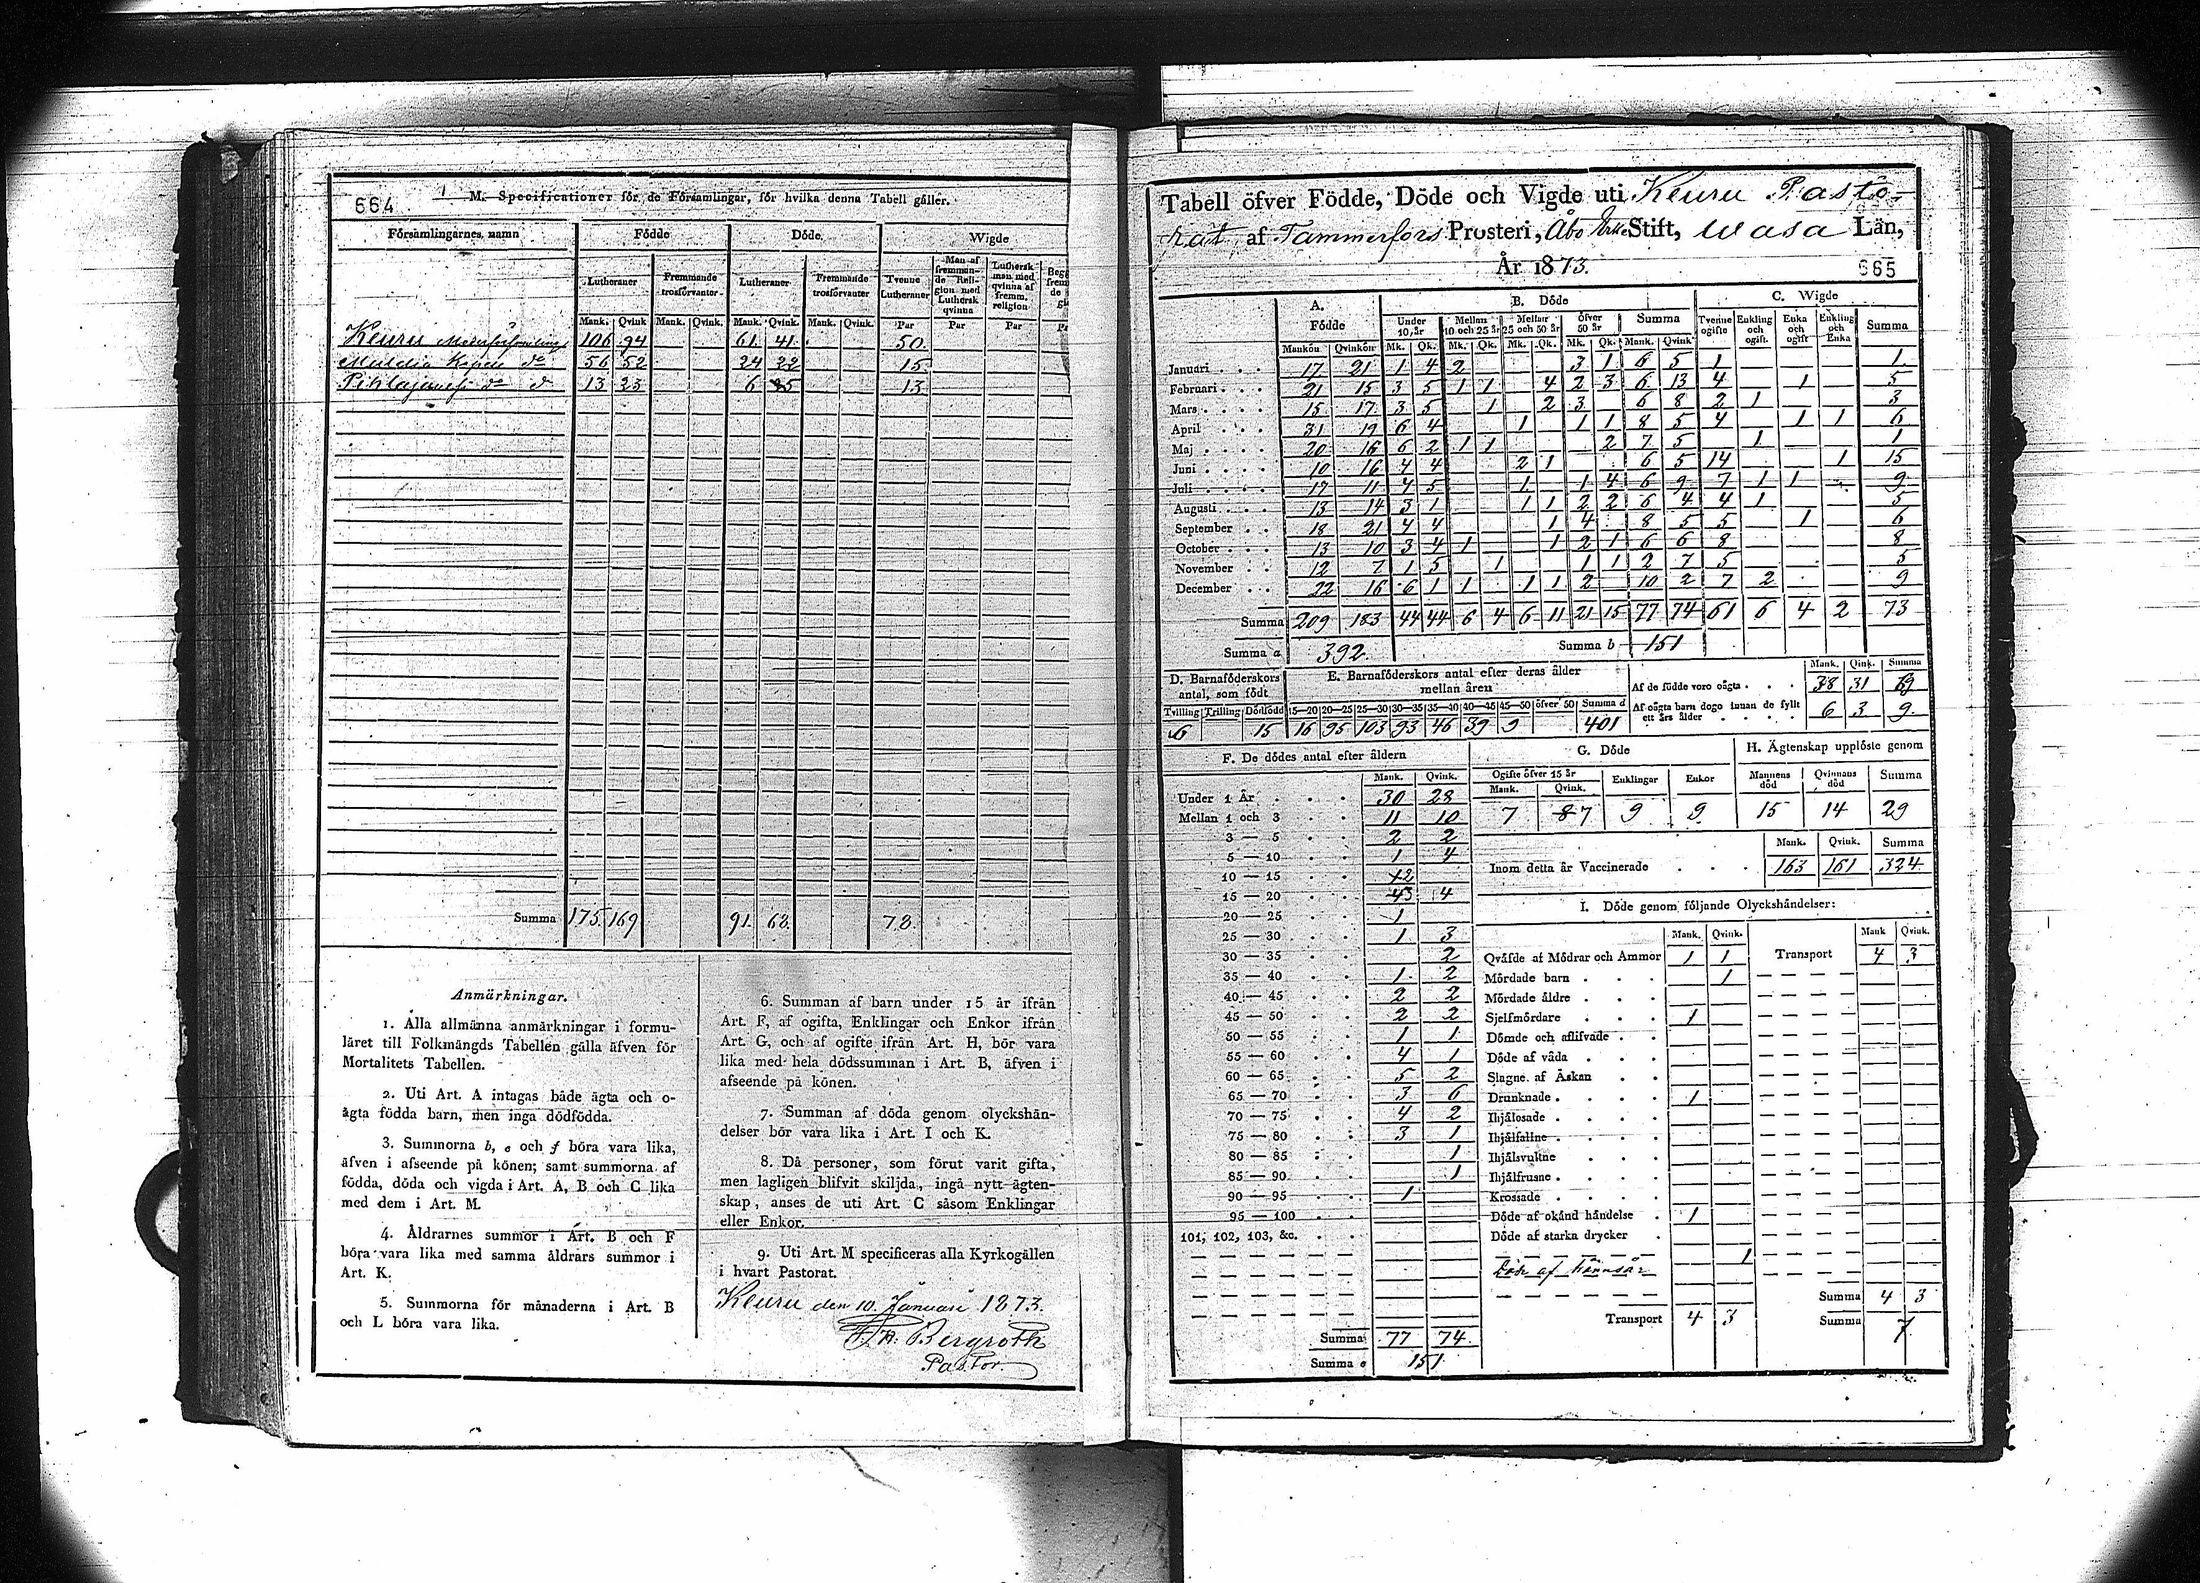 664
M. Specificationer för de Församlingar, för hvilka denna Tabell gäller.
Församlingarnes namn Födde Döde Wigde
Lutheraner Fremmande trosförvanter Lutheraner Fremmande trosförvanter Tvenne Lutheraner Man af fremmande Religion med Luthersk qvinna Luthersk man med qvinna af fremm. religion
Mank. Qvink Mank. Qvink. Mank. Qvink. Mank. Qvink. Par Par Par
Keuru Moderförsamling 106 94 61 41 50
Multia Kapell do 56 52 24 22 15
Pihlajavesi do d 13 23 6 13
Summa 175 169 91 68 78
Anmärkningar.
1. Alla allmänna anmärkningar i formu-
läret till Folkmängds Tabellen gälla äfven för
Mortalitets Tabellen.
2. Uti Art. A intagas både ägta och o-
ägta födda barn, men inga dödfödda.
3. Summorna b, e och f böra vara lika,
äfven i afseende på könen; samt summorna af
födda, döda och vigda i Art. A, B och C lika
med dem i Art. M.
4. Åldrarnes summor i Art. B och F
böra vara lika med samma åldrars summor i
Art. K.
5. Summorna för månaderna i Art. B
och L böra vara lika.
6. Summan af barn under 15 år ifrån
Art. F, af ogifta, Enklingar och Enkor ifrån
Art. G, och af ogifte ifrån Art. H, bör vara
lika med hela dödssumman i Art. B, äfven i
afseende på könen.
7. Summan af döda genom olyckshän-
delser bör vara lika i Art. I och K.
8. Då personer, som förut varit gifta,
men lagligen blifvit skiljda, ingå nytt ägten-
skap, anses de uti Art. C såsom Enklingar
eller Enkor.
9. Uti Art. M specificeras alla Kyrkogällen
i hvart Pastorat.
Keuru den 10. Januari 1873.
Bergroth
Pastor
Tabell öfver Födde, Döde och Vigde uti Keuru Pasto-
rat, af Tammerfors Prosteri, Åbo Stift, Wasa Län,
År 1873.
665
A. Födde B. Döde C. Wigde
Under 10 år Mellan 10 och 25 år Mellan 25 och 50 år öfver 50 år Summa Tvenne ogifte Enkling och ogift. Enka och ogift Enkling och Enka Summa
Mankön Qvinkön Mk. Qk. Mk. Qk. Mk. Qk. Mk. Qk. Mank. Qvink
Januari 17 21 1 4 2 3 1 6 5 1 1
Februari 21 15 3 5 1 1 4 2 3 6 13 4 1 5
Mars 15 17 3 5 1 2 3 6 8 2 1 3
April 31 19 6 4 1 1 1 8 5 4 1 1 6
Maj 20 16 6 2 1 1 2 7 5 1 1
Juni 10 16 4 4 2 1 6 5 14 1 15
Juli 17 11 4 5 1 1 4 6 9 7 1 1 9
Augusti 13 14 3 1 1 1 2 2 6 4 4 1 5
September 18 21 4 4 1 4 8 5 5 1 6
October 13 10 3 4 1 1 2 1 6 6 8 8
November 12 7 1 5 1 1 1 2 7 5 5
December 22 16 6 1 1 1 1 2 10 2 7 2 9
Summa 209 183 44 44 6 4 6 11 21 15 77 74 61 6 4 2 73
Summa a 392 Summa b 151
D. Barnaföderskors antal, som födt
Tvilling Trilling Dödfödd
6 15
E. Barnaföderskors antal efter deras ålder mellan åren
15—20 20—25 25—30 30—35 35—40 40—45 45—50 öfver 50 Summa d
16 95 103 93 46 39 9 401
Mank. Qink. Summa
Af de födde voro oägta 38 31 69
Af oägta barn dogo innan de fyllt ett års ålder 6 3 9
F. De dödes antal efter åldern
Mank. Qvink.
Under 1 År 30 28
Mellan 1 och 3 11 10
3 — 5 2 2
5 — 10 1 4
10 — 15 2
15 — 20 3 4
20 — 25 1
25 — 30 1 3
30 — 35 2
35 — 40 1 2
40 — 45 2 2
45 — 50 2 2
50 — 55 1 1
55 — 60 4 1
60 — 65 5 2
65 — 70 3 6
70 — 75 4 2
75 — 80 3 1
80 — 85 1
85 — 90 1
90 — 95 1
95 — 100
101, 102, 103, &c.
Summa 77 74
Summa e 151
G. Döde
Ogifte öfver 15 år Enklingar Enkor
Mank. Qvink.
7 87 9 9
H. Ägtenskap upplöste genom
Mannens död Qvinnans död Summa
15 14 29
Mank. Qvink. Summa
Inom detta år Vaccinerade 163 161 324
I. Döde genom följande Olyckshändelser:
Mank. Qvink. Mank Qvink.
Qväfde af Mödrar och Ammor 1 1 Transport 4 3
Mördade barn 1
Mördade äldre
Sjelfmördare 1
Dömde och aflifvade
Döde af våda
Slagne af Åskan
Drunknade 1
Ihjälosade
Ihjälfallne
Ihjälsvultne
Ihjälfrusne
Krossade
Döde af okänd händelse 1
Döde af starka drycker
Döde af brännsår 1
Summa 4 3
Transport 4 3 Summa 7